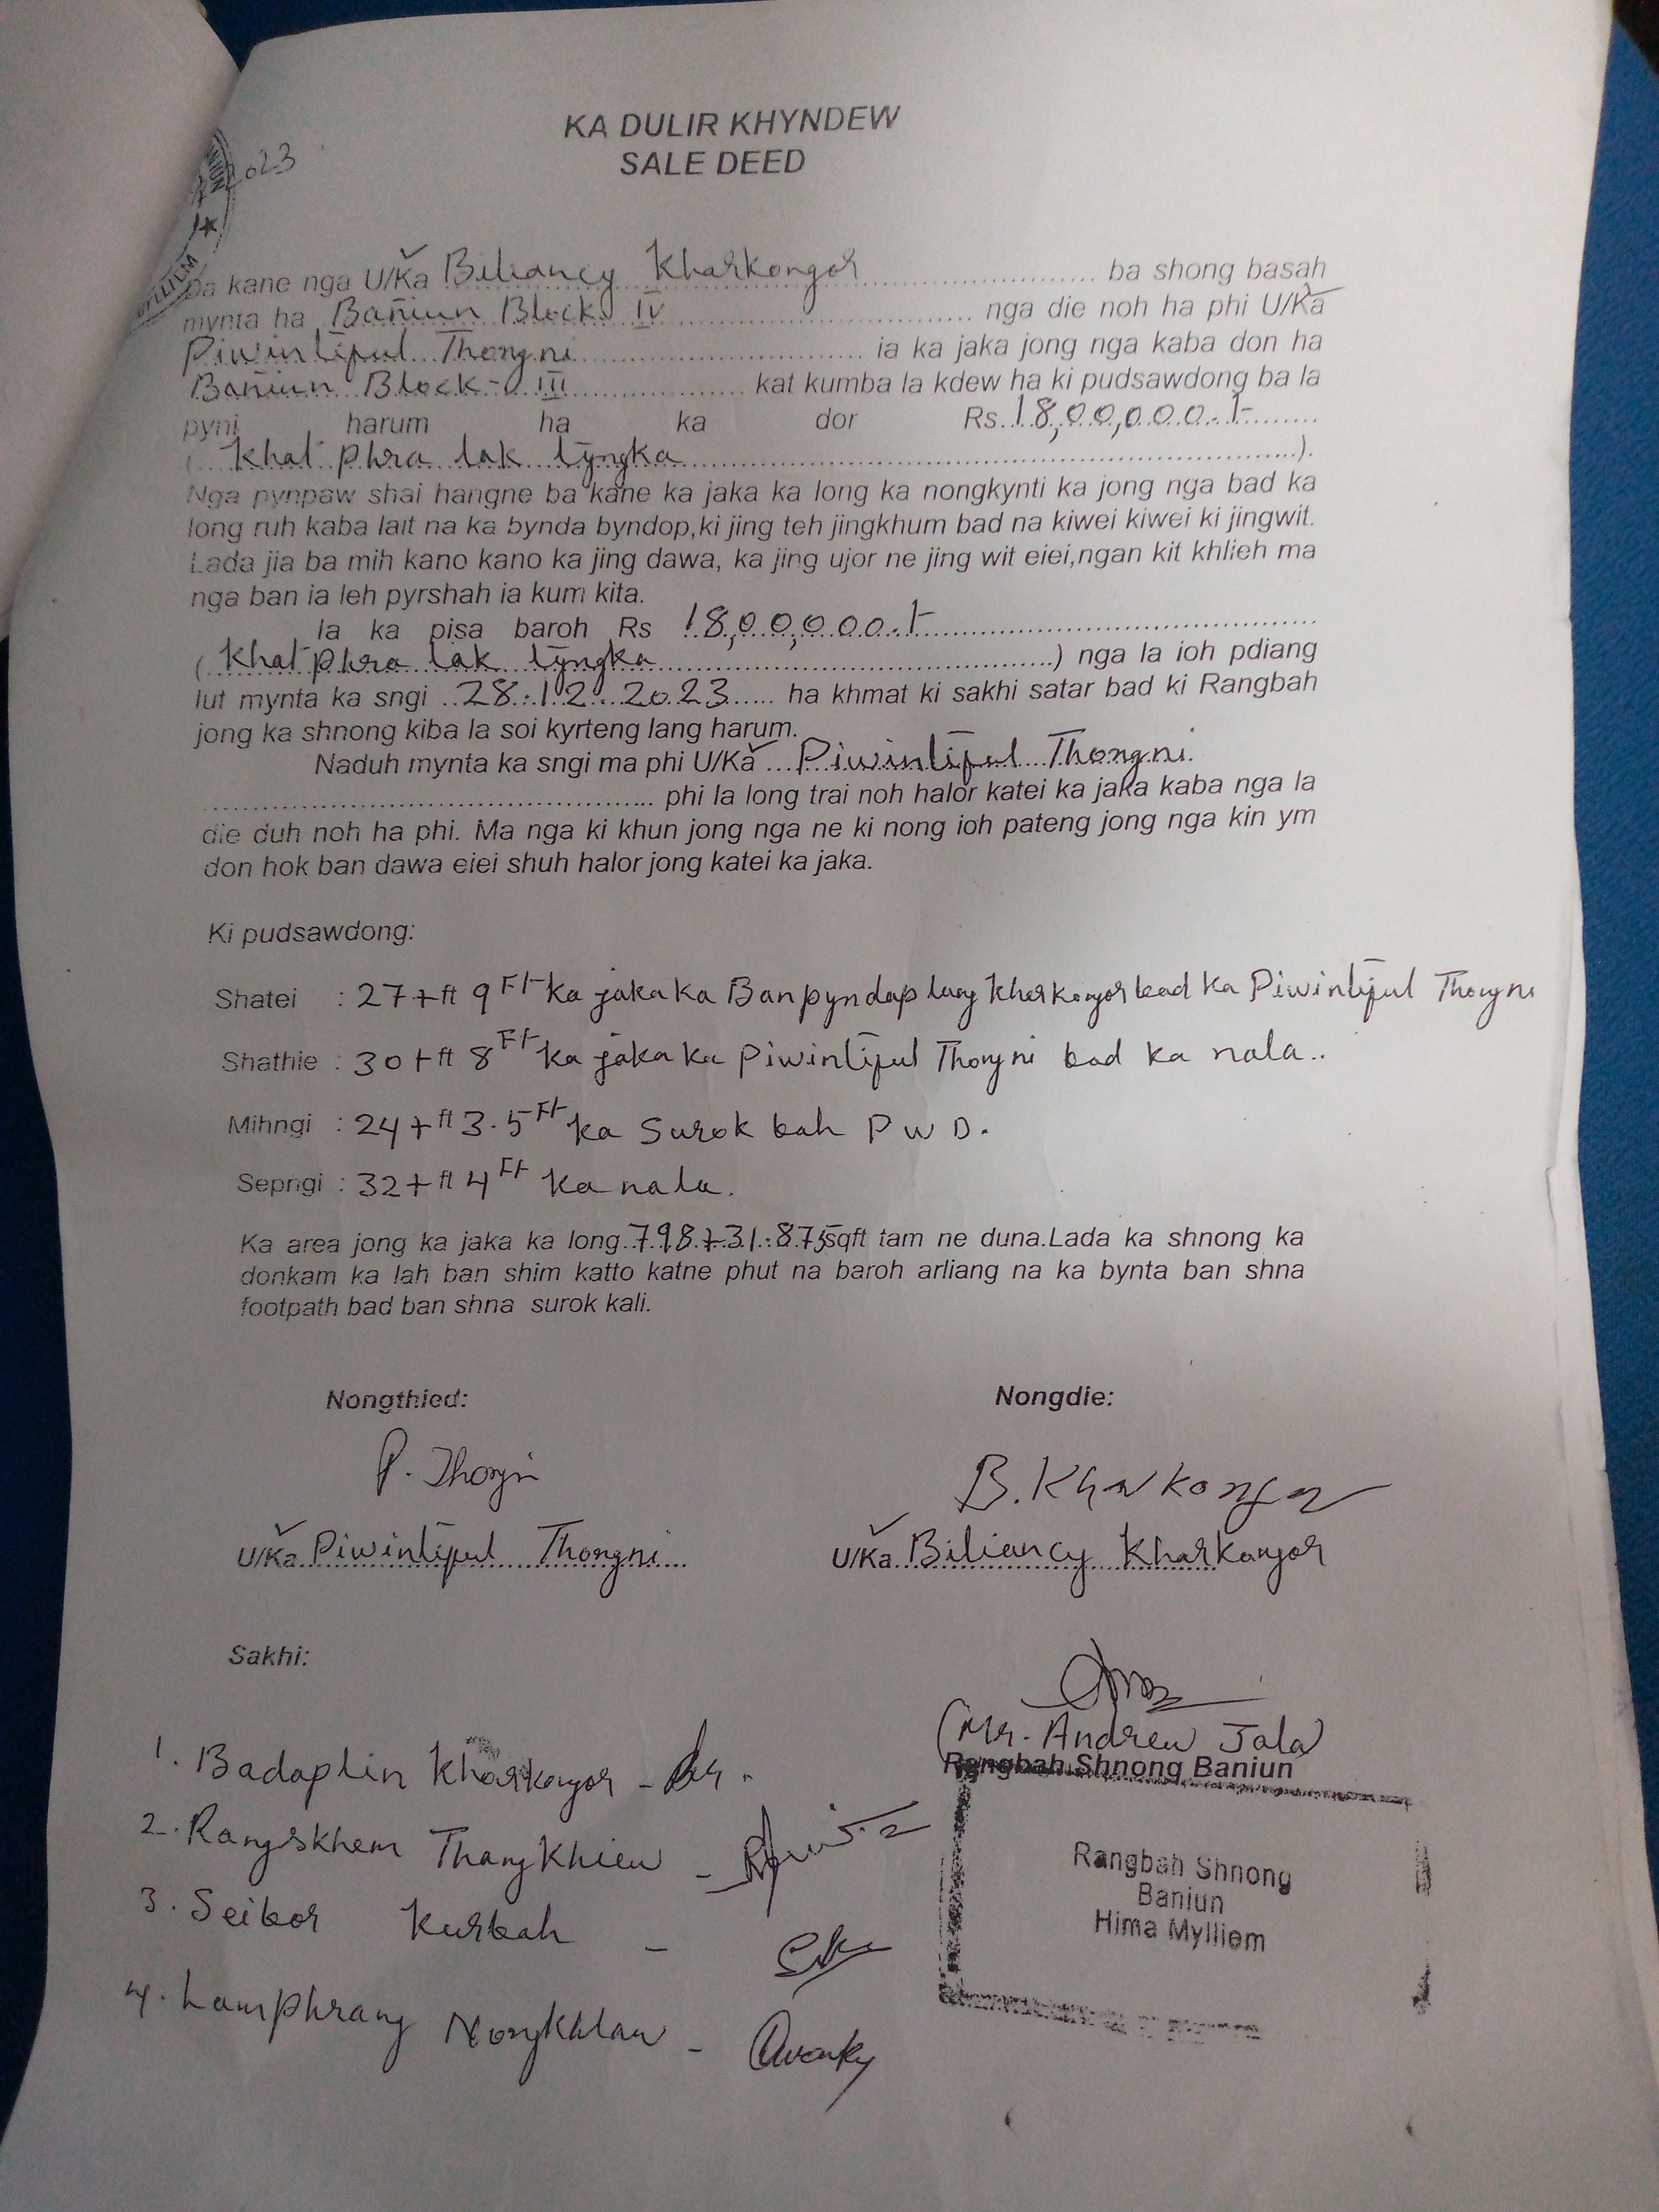 KA DULIR KHYNDEW
SALE DEED
2023
Da kane nga U/Ka Biliancy Kharkongor ba shong basah
mynta ha Bañiun Block IV nga die noh ha phi U/Ka
Piwintiful Thongni ia ka jaka jong nga kaba don ha
Bañiun Block-III kat kumba la kdew ha ki pudsawdong ba la
pyni harum ha ka dor Rs. 18,00,000.I-
( Khat phra lak tyngka ).
Nga pynpaw shai hangne ba kane ka jaka ka long ka nongkynti ka jong nga bad ka
long ruh kaba lait na ka bynda byndop,ki jing teh jingkhum bad na kiwei kiwei ki jingwit.
Lada jia ba mih kano kano ka jing dawa, ka jing ujor ne jing wit eiei,ngan kit khlieh ma
nga ban ia leh pyrshah ia kum kita.
Ia ka pisa baroh Rs 18,00,000.I-
( Khat phra lak tyngka ) nga la ioh pdiang
lut mynta ka sngi 28.12.2023 ha khmat ki sakhi satar bad ki Rangbah
jong ka shnong kiba la soi kyrteng lang harum.
Naduh mynta ka sngi ma phi U/Ka Piwintiful Thongni
phi la long trai noh halor katei ka jaka kaba nga la
die duh noh ha phi. Ma nga ki khun jong nga ne ki nong ioh pateng jong nga kin ym
don hok ban dawa eiei shuh halor jong katei ka jaka.
Ki pudsawdong:
Shatei : 27+ft 9Ft ka jaka ka Banpyndaplang Kharkongor bad ka Piwintiful Thongni
Shathie : 30+ft 8Ft ka jaka ka Piwintiful Thongni bad ka nala..
Mihngi : 24+ft 3.5Ft ka Surok bah PWD.
Sepngi : 32+ft 4Ft ka nala.
Ka area jong ka jaka ka long 798+31.875sqft tam ne duna.Lada ka shnong ka
donkam ka lah ban shim katto katne phut na baroh arliang na ka bynta ban shna
footpath bad ban shna surok kali.
Nongthied: Nongdie:
P. Thongni B. Kharkongor
U/Ka Piwintiful Thongni U/Ka Biliancy Kharkongor
Sakhi:
(Mr. Andrew Jala)
Rangbah Shnong Baniun
1. Badaplin Kharkongor -
2. Rangskhem Thangkhiew -
3. Seibor Kurbah -
4. Lamphrang Nongkhlaw -
Rangbah Shnong
Baniun
Hima Mylliem